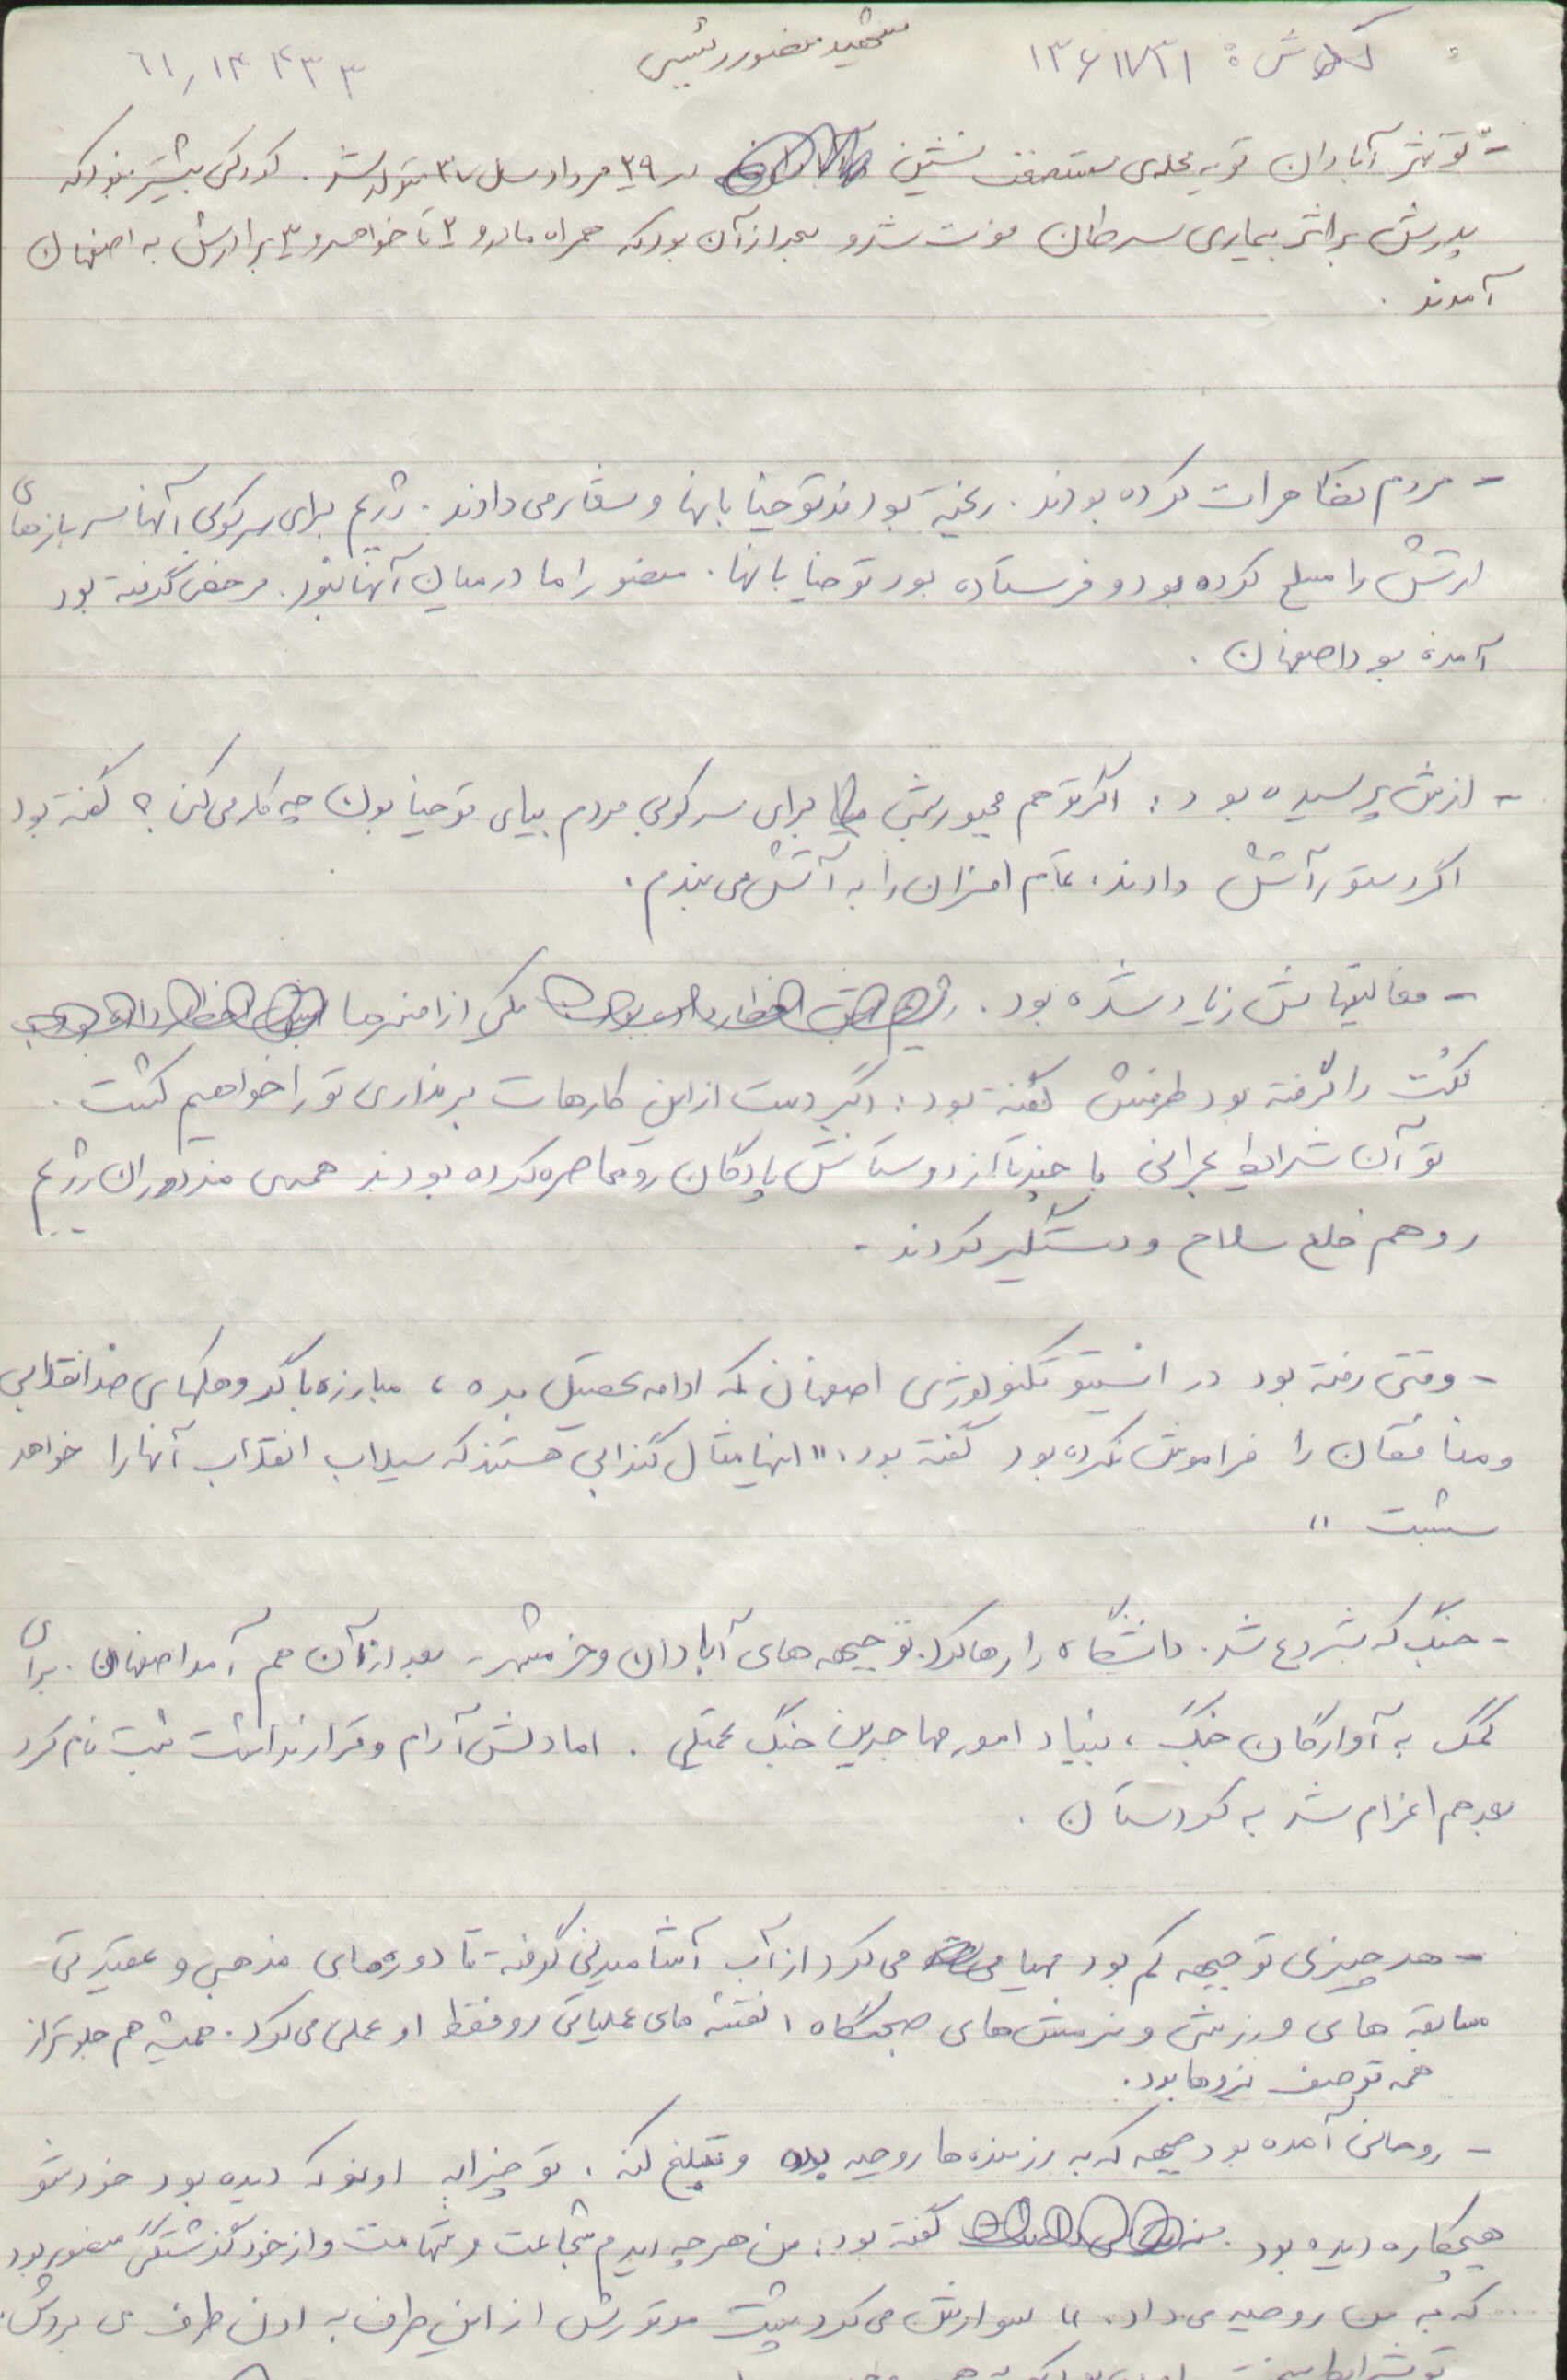 شهید منصور رئیسی
کد ش: ۱۳۶۱۷۳۱
۶۱,۱۴۴۳۳
- تو شهر آبادان تو یه محله‌ی مستضعف نشین در ۲۹ مرداد سال ۳۷ متولد شد. کودکی بیشتر نبود که
پدرش بر اثر بیماری سرطان فوت شد و بعد از آن بود که همراه مادر و ۲ تا خواهر و ۳ برادرش به اصفهان
آمدند.
- مردم تظاهرات کرده بودند. ریخته بودند تو خیابانها و شعار می دادند. رژیم برای سرکوبی آنها سربازهای
ارتش را مسلح کرده بود و فرستاده بود تو خیابانها. منصور اما در میان آنها نبود. مرخصی گرفته بود
آمده بود اصفهان.
- ازش پرسیده بود: اگر تو هم مجبور بشی برای سرکوبی مردم بیای تو خیابون چه کار می کنی؟ گفته بود
اگر دستور آتش دادند، تمام افسران را به آتش می بندم.
- فعالیتهایش زیاد شده بود. یکی از افسرها
کلت را گرفته بود طرفش گفته بود: اگر دست از این کارهات بر نداری تو را خواهیم کشت.
تو آن شرایط بحرانی با چند تا از دوستانش پادگان رو محاصره کرده بودند همه‌ی مزدوران رژیم
رو هم خلع سلاح و دستگیر کردند.
- وقتی رفته بود در انستیتو تکنولوژی اصفهان که ادامه تحصیل بده، مبارزه با گروهکهای ضد انقلابی
و منافقان را فراموش نکرده بود گفته بود: "اینها مثال گندابی هستند که سیلاب انقلاب آنها را خواهد
شست"
- جنگ که شروع شد. دانشگاه را رها کرد. تو جبهه های آبادان و خرمشهر. بعد از آن هم آمد اصفهان. برای
کمک به آوارگان جنگ، بنیاد امور مهاجرین جنگ تحمیلی. اما دلش آرام و قرار نداشت ثبت نام کرد
بعد هم اعزام شد به کردستان.
- هر چیزی تو جبهه کم بود مهیا می کرد از آب آشامیدنی گرفته تا دوره‌های مذهبی و عقیدتی
مسابقه های ورزشی و نرمش های صبحگاه، نقشه های عملیاتی رو فقط او عملی می کرد. همیشه هم جلوتر از
همه تو صف نیروها بود.
- روحانی آمده بود جبهه که به رزمنده ها روحیه بده و تبلیغ کنه. تو خیزابه اونو که دیده بود خودشو
هیچکاره دیده بود. گفته بود: من هر چه دیدم شجاعت و شهامت و از خود گذشتگی منصور بود
که به من روحیه می داد." سوارش می کرد پشت موتورش از این طرف به اون طرف می بردش.